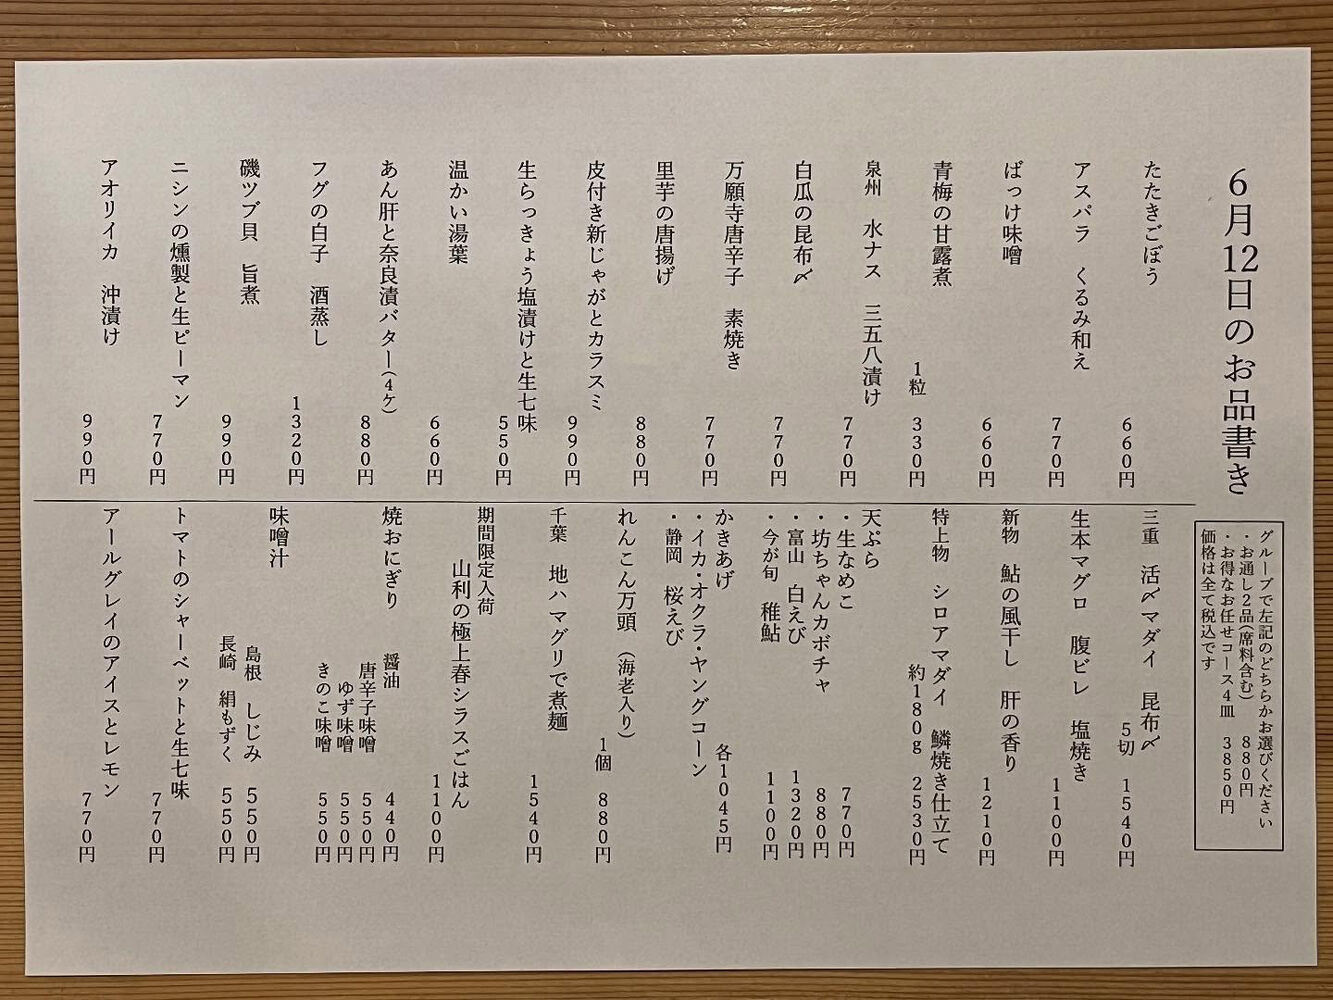 6月12日のお品書き
グループで左記のどちらかお選びください
・お通し2品(席料含む) 880円
・お得なお任せコース4皿 3850円
価格は全て税込です
たたきごぼう 660円
アスパラ くるみ和え 770円
ばっけ味噌 660円
青梅の甘露煮 1粒 330円
泉州 水ナス 三五八漬け 770円
白瓜の昆布〆 770円
万願寺唐辛子 素焼き 770円
里芋の唐揚げ 880円
皮付き新じゃがとカラスミ 990円
生らっきょう塩漬けと生七味 550円
温かい湯葉 660円
あん肝と奈良漬バター(4ケ) 880円
フグの白子 酒蒸し 1320円
磯ツブ貝 旨煮 990円
ニシンの燻製と生ピーマン 770円
アオリイカ 沖漬け 990円
三重 活〆マダイ 昆布〆 5切 1540円
生本マグロ 腹ビレ 塩焼き 1100円
新物 鮎の風干し 肝の香り 1210円
特上物 シロアマダイ 鱗焼き仕立て 約180g 2530円
天ぷら
・生なめこ 770円
・坊ちゃんカボチャ 880円
・富山 白えび 1320円
・今が旬 稚鮎 1100円
かきあげ 各1045円
・イカ・オクラ・ヤングコーン
・静岡 桜えび
れんこん万頭 (海老入り) 1個 880円
千葉 地ハマグリで煮麺 1540円
期間限定入荷
山利の極上春シラスごはん 1100円
焼おにぎり 醤油 440円
唐辛子味噌 550円
ゆず味噌 550円
きのこ味噌 550円
味噌汁
島根 しじみ 550円
長崎 絹もずく 550円
トマトのシャーベットと生七味 770円
アールグレイのアイスとレモン 770円